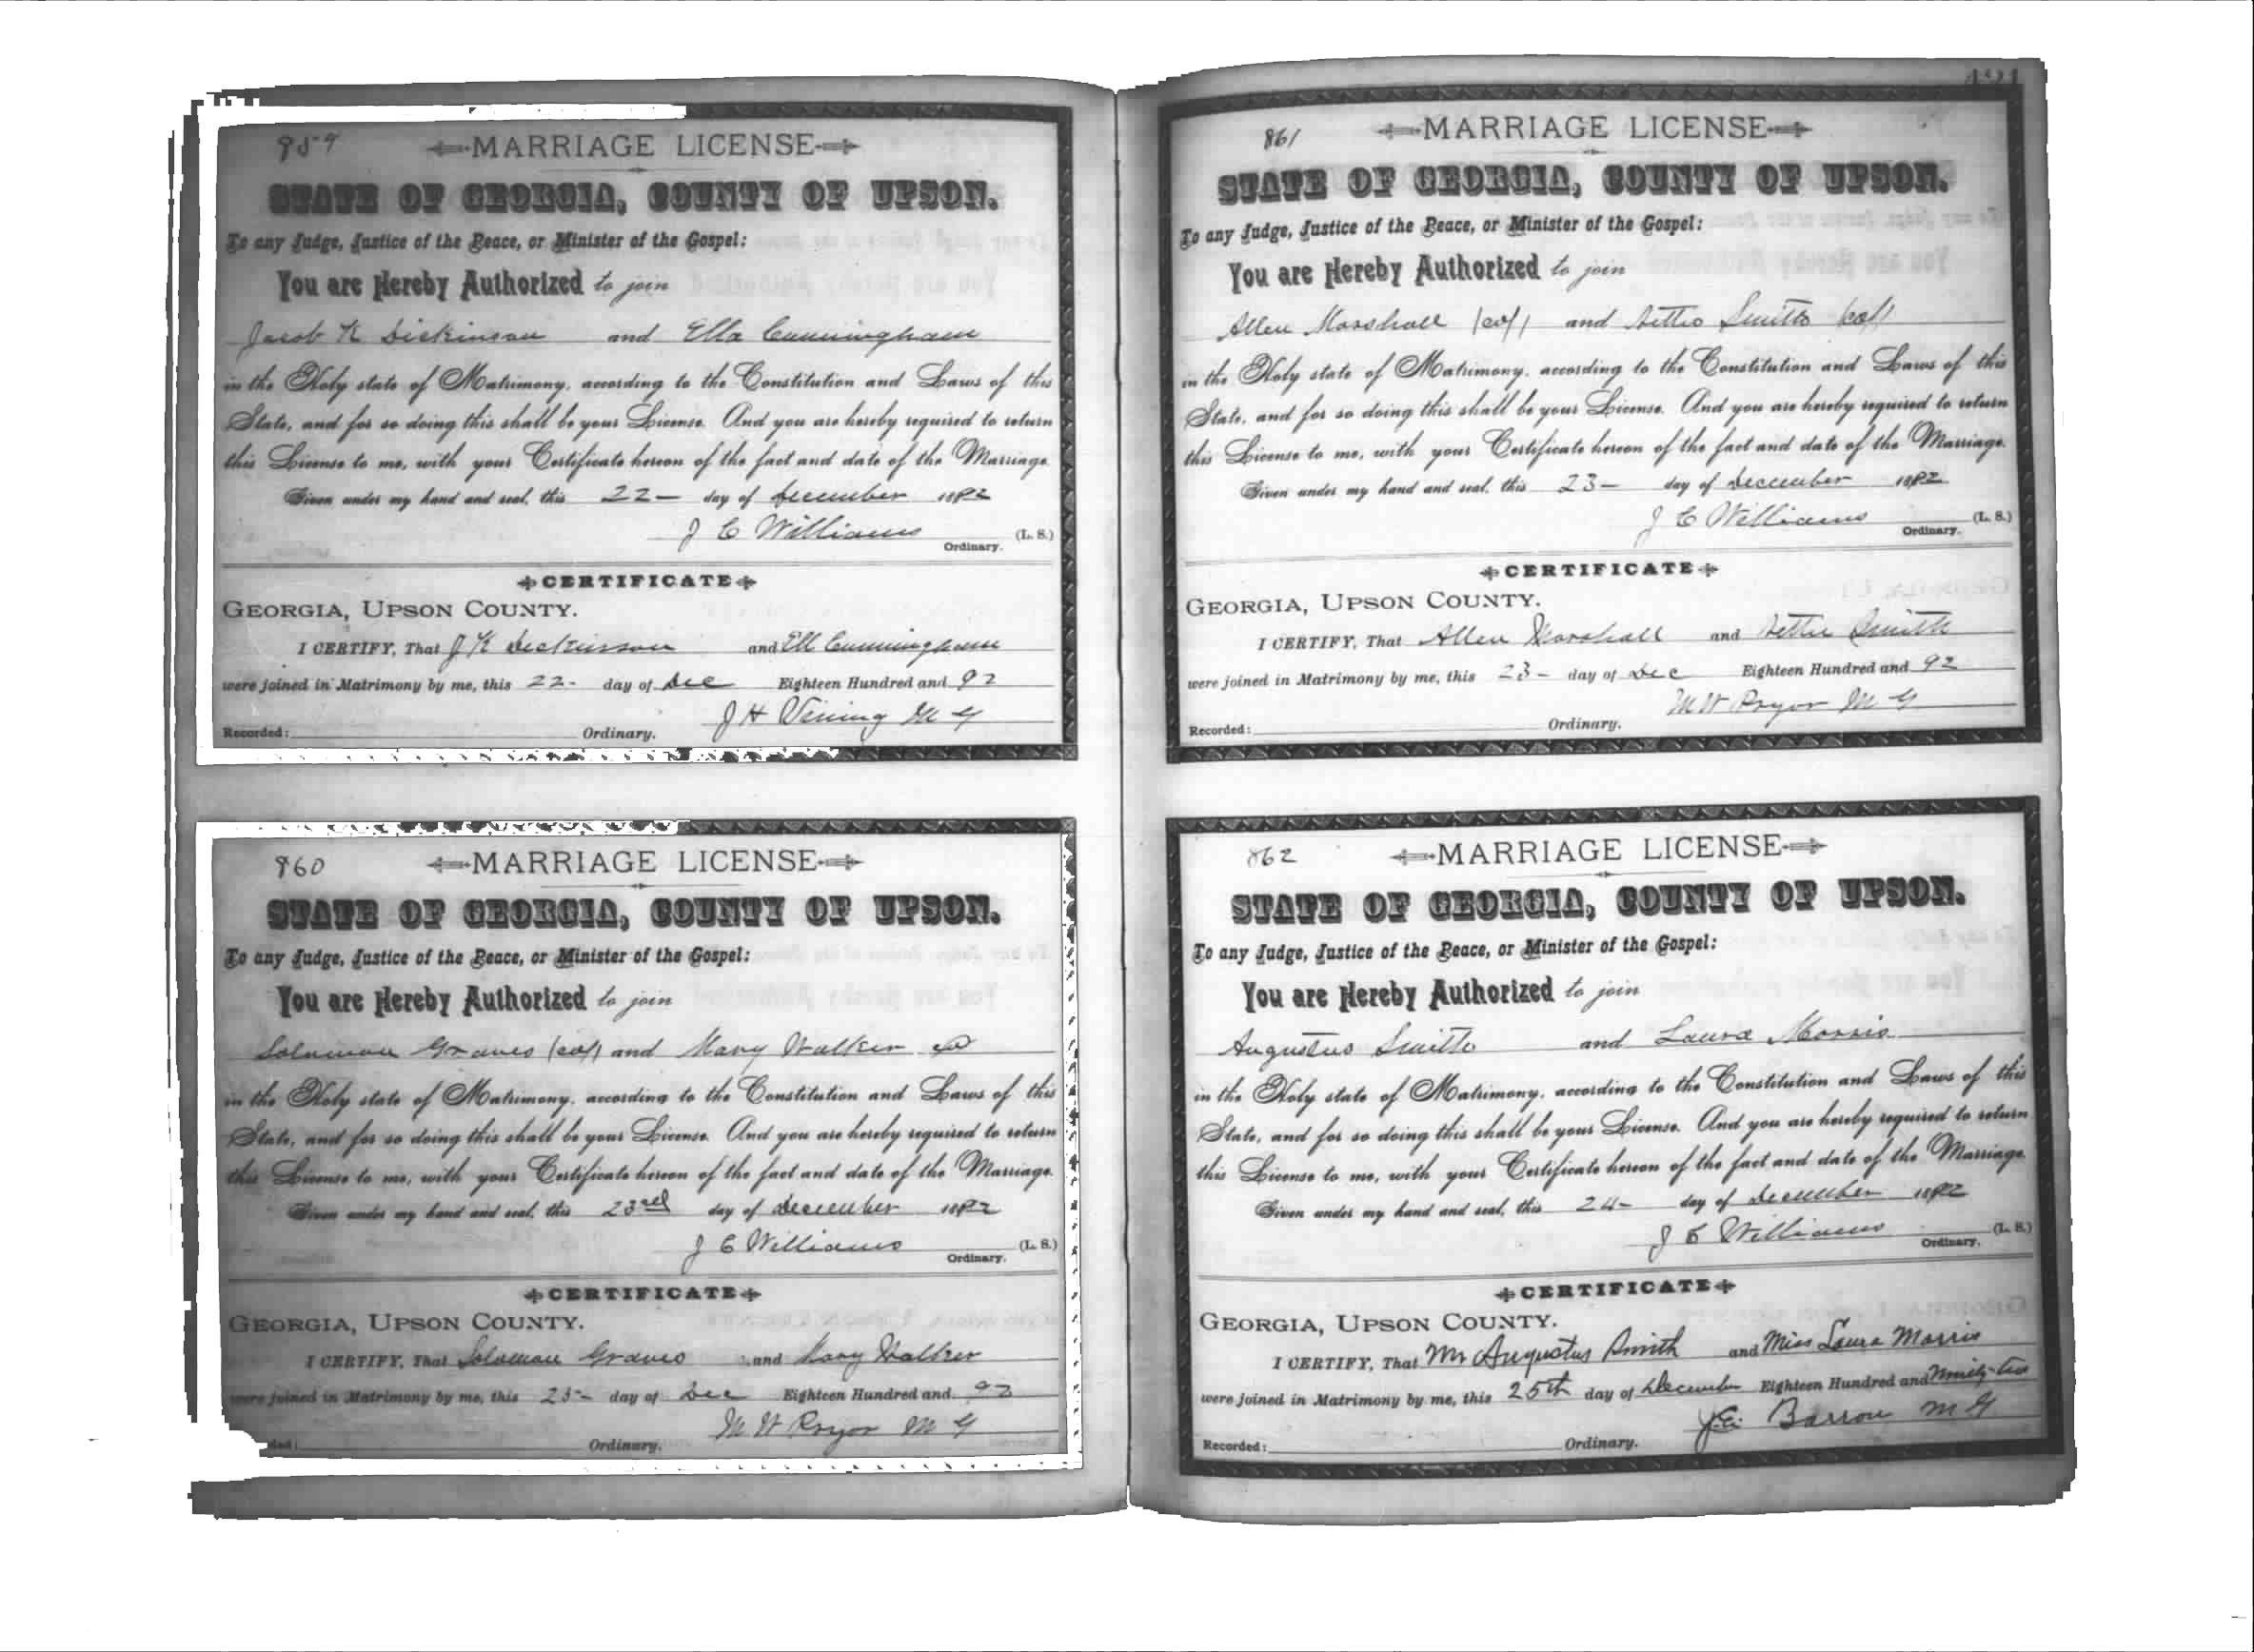 859
MARRIAGE LICENSE
STATE OF GEORGIA, COUNTY OF UPSON.
To any Judge, Justice of the Peace, or Minister of the Gospel:
You are Hereby Authorized to join
Jacob K Dickinson and Ella Cunningham
in the Holy state of Matrimony, according to the Constitution and Laws of this
State, and for so doing this shall be your License. And you are hereby required to return
this License to me, with your Certificate hereon of the fact and date of the Marriage.
Given under my hand and seal, this 22- day of December 1892
J C Williams (L. S.)
Ordinary.
CERTIFICATE
GEORGIA, UPSON COUNTY.
I CERTIFY, That J K Dickinson and Ell Cunningham
were joined in Matrimony by me, this 22- day of Dec Eighteen Hundred and 92
J H Vining M G
Recorded: Ordinary.
860
MARRIAGE LICENSE
STATE OF GEORGIA, COUNTY OF UPSON.
To any Judge, Justice of the Peace, or Minister of the Gospel:
You are Hereby Authorized to join
Solomon Graves (col) and Mary Walker
in the Holy state of Matrimony, according to the Constitution and Laws of this
State, and for so doing this shall be your License. And you are hereby required to return
this License to me, with your Certificate hereon of the fact and date of the Marriage.
Given under my hand and seal, this 23rd day of December 1892
J C Williams (L. S.)
Ordinary.
CERTIFICATE
GEORGIA, UPSON COUNTY.
I CERTIFY, That Soloman Graves and Mary Walker
were joined in Matrimony by me, this day of Dec Eighteen Hundred and 92
M W Pryor M G
Ordinary.
861
MARRIAGE LICENSE
STATE OF GEORGIA, COUNTY OF UPSON.
To any Judge, Justice of the Peace, or Minister of the Gospel:
You are Hereby Authorized to join
Allen Marshall (col) and Smith (col)
in the Holy state of Matrimony, according to the Constitution and Laws of this
State, and for so doing this shall be your License. And you are hereby required to return
this License to me, with your Certificate hereon of the fact and date of the Marriage.
Given under my hand and seal, this 23- day of December 1892
J C Williams (L. S.)
Ordinary.
CERTIFICATE
GEORGIA, UPSON COUNTY.
I CERTIFY, That Allen Marshall and Smith
were joined in Matrimony by me, this 23- day of Dec Eighteen Hundred and 92
M W Pryor M G
Recorded: Ordinary.
862
MARRIAGE LICENSE
STATE OF GEORGIA, COUNTY OF UPSON.
To any Judge, Justice of the Peace, or Minister of the Gospel:
You are Hereby Authorized to join
Augustus Smith and Laura Morris
in the Holy state of Matrimony, according to the Constitution and Laws of this
State, and for so doing this shall be your License. And you are hereby required to return
this License to me, with your Certificate hereon of the fact and date of the Marriage.
Given under my hand and seal, this 24- day of December 1892
J C Williams (L. S.)
Ordinary.
CERTIFICATE
GEORGIA, UPSON COUNTY.
I CERTIFY, That Mr Augustus Smith and Miss Laura Morris
were joined in Matrimony by me, this 25th day of December Eighteen Hundred and Ninety-two
Barron M G
Recorded: Ordinary.